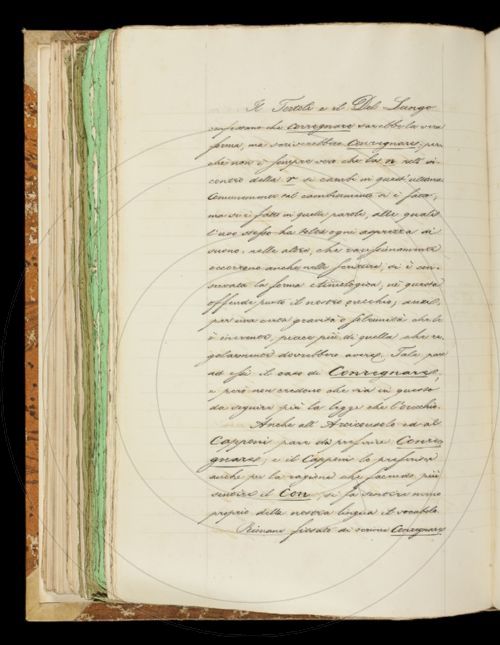 Il Tortoli e il Del Lungo
confessano che corregnare sarebbe la vera
forma, ma scriverebbero Conregnare, per
chè non è sempre vero che la n nell' in-
contro della r si cambi in quest' ultima.
Comunemente tal cambiamento si è fatto;
ma si è fatto in quelle parole, alle quali
l'uso stesso ha tolto ogni asprezza di
suono: nelle altre, che rarissimamente
occorrono anche nelle scritture, si è con-
servata la forma etimologica, nè questa
offende punto il nostro orecchio, avendo
per una certa gravità o
è increscio, piace più di quella che re-
golarmente dovrebbero avere. Tale pare
ad essi il caso di Conregnare,
e però non credono che sia in questo
da seguire più la legge che l'orecchio.
Anche all' Arciconsolo ed al
Capponi pare da preferire Conre-
gnare; e il Capponi lo preferisce
anche per la ragione che facendo più
sentire il Con, si fa sentire meno
proprio della nostra lingua il vocabolo.
Rimane fissato di scrivere Conregnare